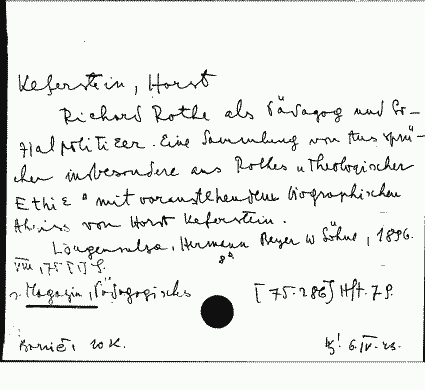 Keferstein, Horst
Richard Rothe als Pädagog und So-
zialpolitiker. Eine Sammlung von Aussprü-
chen insbesondere aus Rothes "Theologischer
Ethik" mit voranstehendem biographischen
Abriss von Horst Keferstein.
Langensalza, Hermann Beyer u Söhne, 1896.
8°
VIII, 75 [1] S.
Magazin, Pädagogisches [75-286] Hft. 79.
20 K. 6. IV.